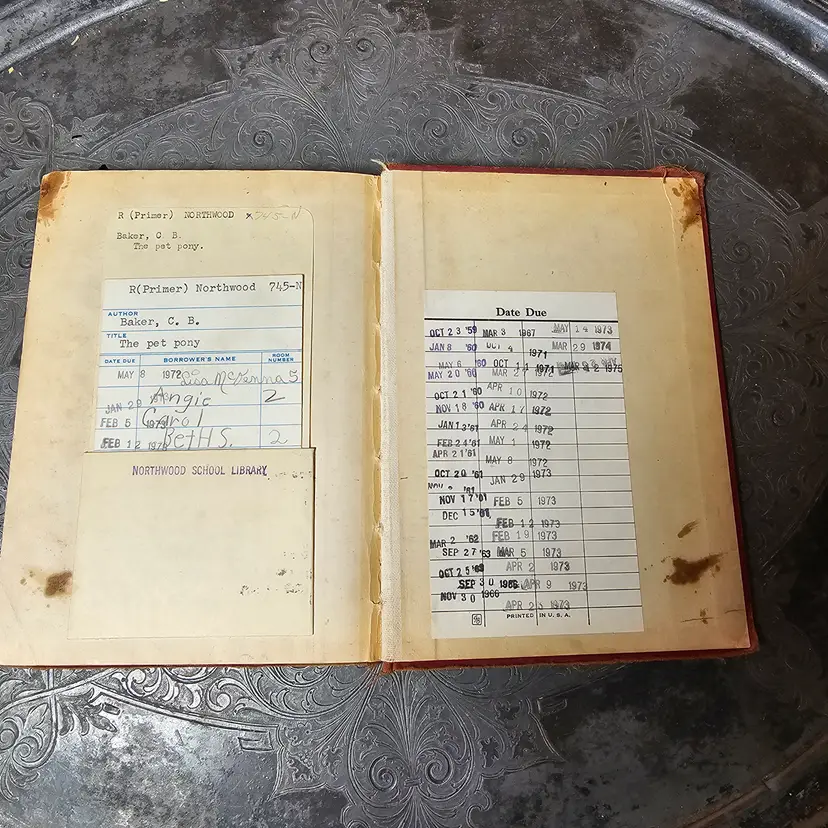 R (Primer) NORTHWOOD x745-N
Baker, C. B.
The pet pony.
R(Primer) Northwood 745-N
AUTHOR
Baker, C. B.
TITLE
The pet pony
DATE DUE BORROWER'S NAME ROOM NUMBER
MAY 8 1972 Lisa McKenna 5
JAN 29 Angie 2
FEB 5 Carol
FEB 12 Beth S. 2
NORTHWOOD SCHOOL LIBRARY
Date Due
OCT 23 '59 MAR 3 1967 MAY 14 1973
JAN 8 '60 OCT 4 1971 MAR 29 1974
MAY 6 '60 OCT 1971 1975
MAY 20 '60 MAR 1972
OCT 21 '60 APR 10 1972
NOV 18 '60 APR 17 1972
JAN 13 '61 APR 24 1972
FEB 24 '61 MAY 1 1972
APR 21 '61 MAY 8 1972
OCT 20 '61 JAN 29 1973
NOV '61
NOV 17 '61 FEB 5 1973
DEC 15 '61 FEB 12 1973
MAR 2 '62 FEB 19 1973
SEP 27 '63 MAR 5 1973
OCT 25 '63 APR 2 1973
SEP 30 1966 APR 9 1973
NOV 30 1966 APR 1973
PRINTED IN U. S. A.